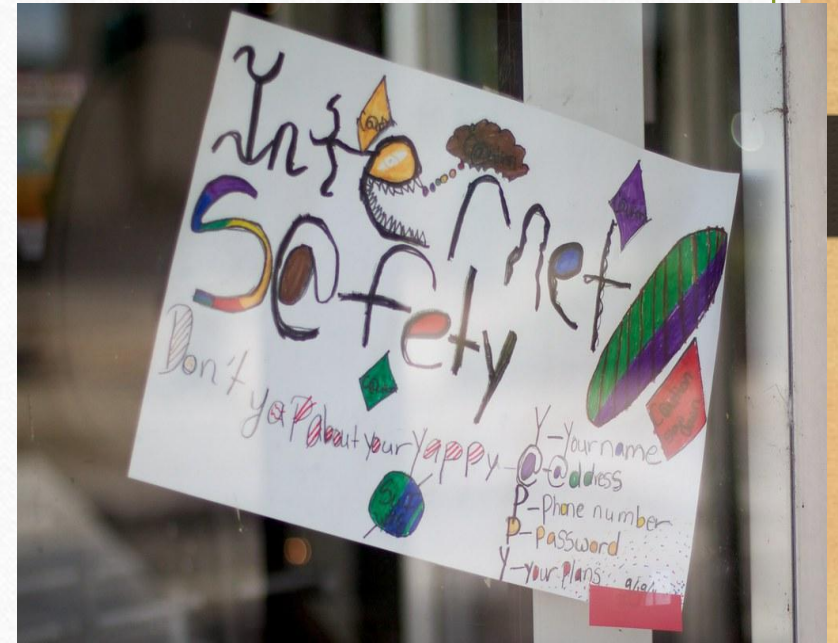 Internet
S@fety
Don't yaP about your yappy
Y-Your name
@-@ddress
P-Phone number
P-password
Y-your plans